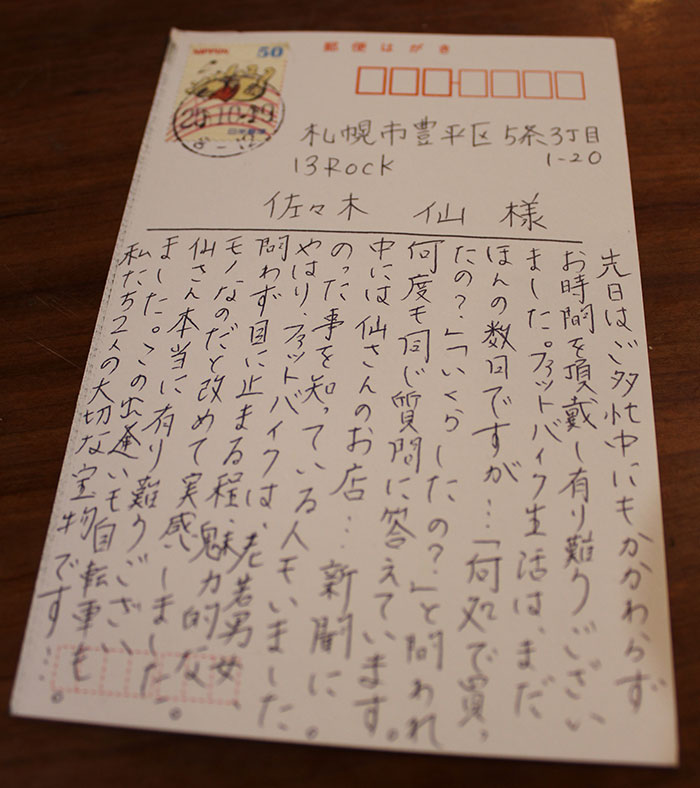 郵便はがき
NIPPON 50
日本郵便
25.10.
8-12
札幌市豊平区5条3丁目
1-20
13Rock
佐々木 仙 様
先日はご多忙中にもかかわらず
お時間を頂戴し有り難うござい
ました。ファットバイク生活は、まだ
ほんの数日ですが…「何処で買っ
たの?」「いくらしたの?」と問われ
何度も同じ質問に答えています。
中には仙さんのお店…新聞に
のった事を知っている人もいました。
やはり、ファットバイクは、老若男女、
問わず目に止まる程、魅力的な
モノなのだと改めて実感しました。
仙さん本当に有り難うござい
ました。この出逢いも自転車も
私たち2人の大切な宝物です…。